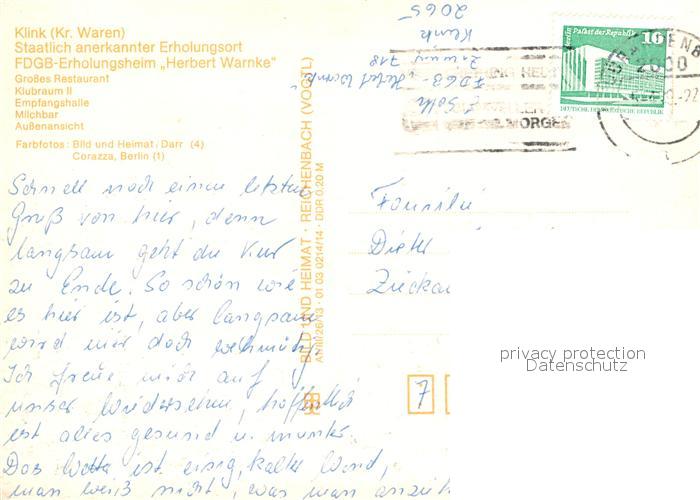 Klink (Kr. Waren)
Staatlich anerkannter Erholungsort
FDGB-Erholungsheim „Herbert Warnke“
Großes Restaurant
Klubraum II
Empfangshalle
Milchbar
Außenansicht
Farbfotos: Bild und Heimat, Darr (4)
Corazza, Berlin (1)
Schnell noch einen letzten
Gruß von hier, denn
langsam geht die Kur
zu Ende. So schön wie
es hier ist, aber langsam
wird mir doch wehmütig
Ich freue mich auf
unser Wiedersehen, hoffentlich
ist alles gesund u. munter.
Das Wetter ist eisig, kalter Wind,
man weiß nicht, was man anzieh
BILD UND HEIMAT · REICHENBACH (VOGTL)
A1/III/26/13 · 01 03 0214/14 · DDR 0,20 M
FDGB-
Zimmer 718
Klink
2065
MORGEN
Berlin, Palast der Republik
10
DEUTSCHE DEMOKRATISCHE REPUBLIK
2000
Familie
Dieter
Zwickau
7
privacy protection
Datenschutz